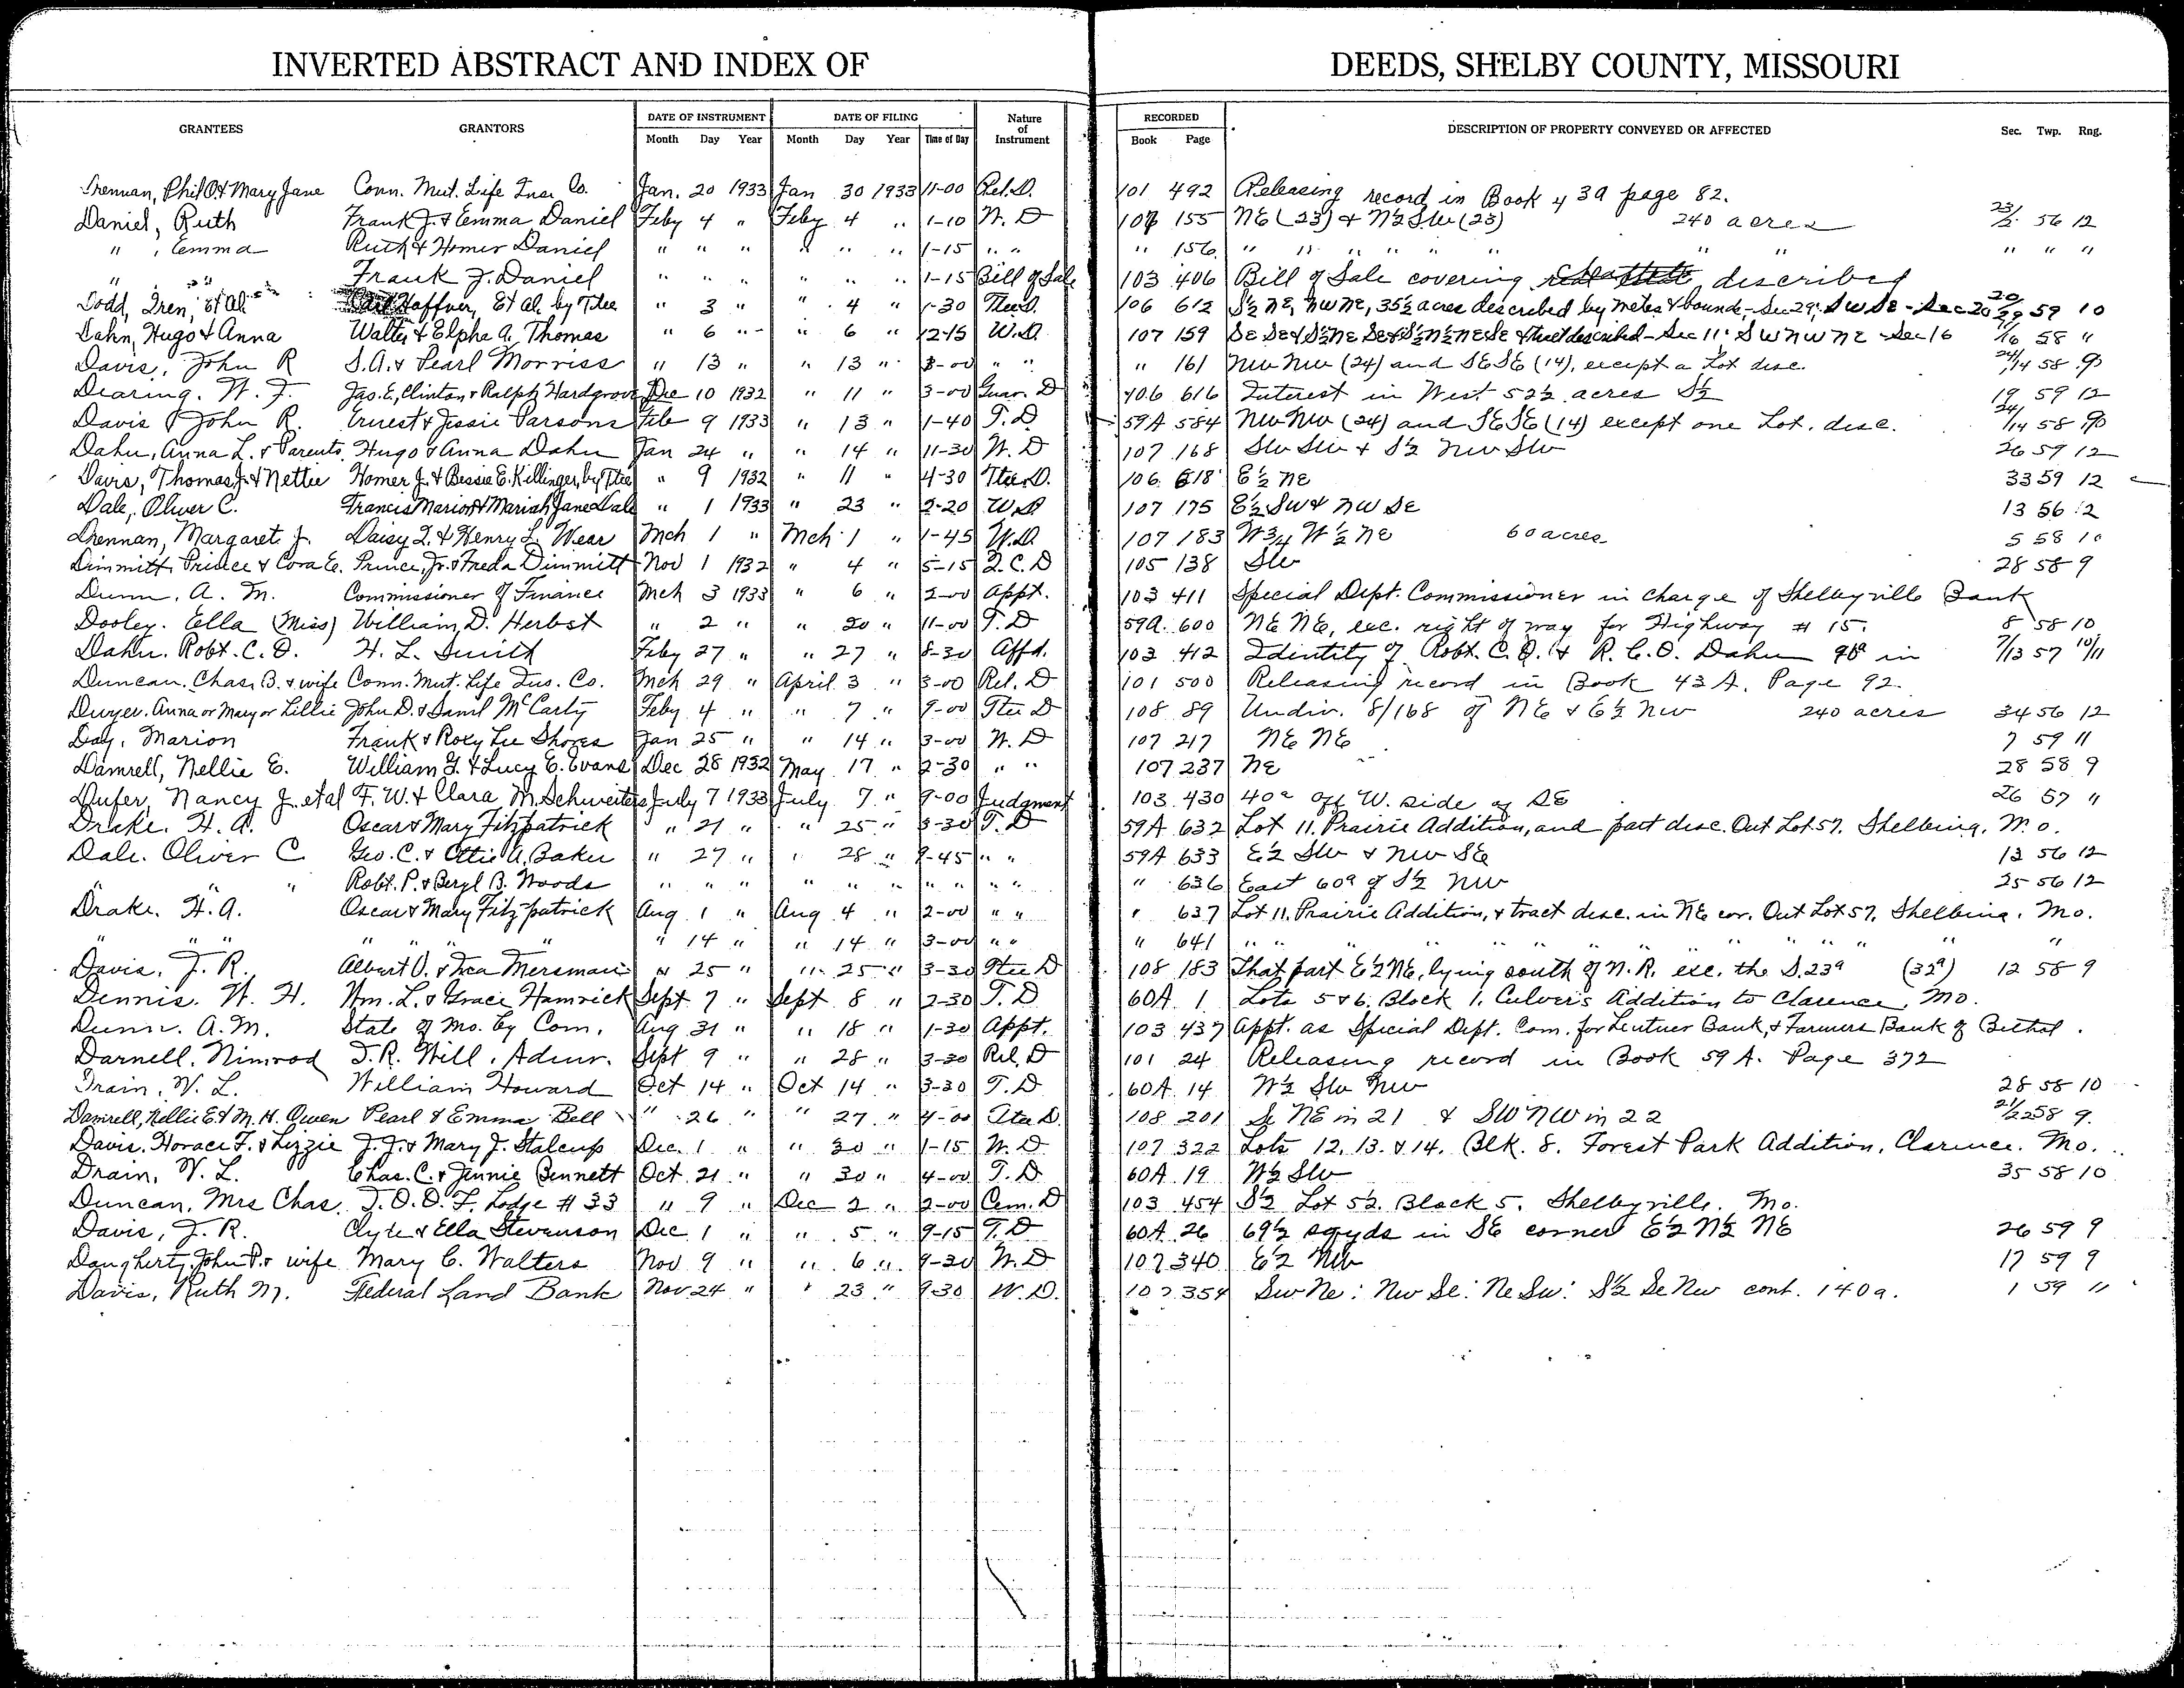 INVERTED ABSTRACT AND INDEX OF DEEDS, SHELBY COUNTY, MISSOURI
GRANTEES GRANTORS DATE OF INSTRUMENT DATE OF FILING Nature of Instrument RECORDED DESCRIPTION OF PROPERTY CONVEYED OR AFFECTED Sec. Twp. Rng.
Month Day Year Month Day Year Time of Day Book Page
Drennan, Phil O. & Mary Jane Conn. Mut. Life Ins. Co. Jan. 20 1933 Jan 30 1933 11-00 Rel. D. 101 492 Releasing record in Book 39 page 82.
Daniel, Ruth Frank J. & Emma Daniel Feby 4 " Feby 4 " 1-10 W. D 107 155 NE (23) & N½ SW (23) 240 acres 56 12
" , Emma Ruth & Homer Daniel " " " " " 1-15 " " " 156 " " " " " " " " " " "
" " Frank J. Daniel " " " " " " 1-15 Bill of Sale 103 406 Bill of Sale covering described
Dodd, Iren, et Al. Haffner, Et al. by Ttee " 3 " " 4 " 1-30 Ttee D. 106 612 S½ NE, NW NE, 35½ acres described by metes & bounds - Sec 29; SW SE - Sec 20 20/29 59 10
Dahn, Hugo & Anna Walter & Elpha A. Thomas " 6 " " 6 " 12-15 W.D. 107 159 SW NW NE - Sec 16 11/16 58 "
Davis, John R S.A. & Pearl Morriss " 13 " " 13 " 8-00 " " " 161 NW NW (24) and SE SE (14), except a Lot desc. 24/14 58
Dearing, W. F. Jas. E., Clinton & Ralph Hardgrove Dec 10 1932 " 11 " 3-00 Guar. D 106 616 Interest in West 52½ acres S½ 19 59 12
Davis John R. Ernest & Jessie Parsons Feb 9 1933 " 13 " 1-40 T. D 59A 584 NW NW (24) and SE SE (14) except one Lot, desc. 24/14 58
Dahn, Anna L. & Parents, Hugo & Anna Dahn Jan 24 " " 14 " 11-30 W. D 107 168 SW SW & S½ NW SW 26 59 12
Davis, Thomas J. & Nettie Homer J. & Bessie E. Killinger, by Ttee " 9 1932 " 11 " 4-30 Ttee D. 106 618 E½ NE 33 59 12
Dale, Oliver C. Francis Marion & Mariah Jane Dale " 1 1933 " 23 " 2-20 W.D 107 175 E½ SW & NW SE 13 56 12
Drennan, Margaret J. Daisy L. & Henry L. Wear Mch 1 " Mch 1 " 1-45 W.D. 107 183 W¾ W½ NE 60 acres 5 58 10
Dimmitt, Prince & Cora E. Prince, Jr. & Freda Dimmitt Nov 1 1932 " 4 " 5-15 Q.C.D 105 138 SW 28 58 9
Dunn, A. M. Commissioner of Finance Mch 3 1933 " 6 " 2-00 Appt. 103 411 Special Dept. Commissioner in charge of Shelbyville Bank
Dooley, Ella (Miss) William D. Herbst " 2 " " 20 " 11-00 T. D 59A 600 NE NE, exc. right of way for Highway # 15. 8 58 10
Dahn, Robt. C. O. H. L. Smith Feby 27 " " 27 " 8-30 Affd. 103 412 Idintity of Robt. C. O. & R. C. O. Dahn in 7/13 57 10/11
Duncan, Chas. B. & wife Conn. Mut. Life Ins. Co. Mch 29 " April 3 " 3-00 Rel. D 101 500 Releasing record in Book 43 A. Page 92.
Dwyer, Anna or Mary or Lillie John D. & Daniel McCarty Feby 4 " " 7 " 9-00 Ttee D 108 89 Undiv. 8/168 of NE & E½ NW 240 acres 34 56 12
Day, Marion Frank & Roxy Lee Shores Jan 25 " " 14 " 3-00 W. D 107 217 NE NE 7 59 11
Damrell, Nellie E. William G. & Lucy E. Evans Dec 28 1932 May 17 " 2-30 " " 107 237 NE 28 58 9
Dufer, Nancy J. et al F. W. & Clara M. Schwieters July 7 1933 July 7 " 9-00 Judgment 103 430 40a off W. side of SE 26 57 "
Drake, H. A. Oscar & Mary Fitzpatrick " 21 " " 25 " 3-30 T. D 59A 632 Lot 11, Prairie Addition, and part desc. Out Lot 57, Shelbina, Mo.
Dale, Oliver C. Geo. C. & Ottie A. Baker " 27 " " 28 " 9-45 " " 59A 633 E½ SW & NW SE 13 56 12
" " " Robt. P. & Beryl B. Woods " " " " " " " " " " 636 East 60a of S½ NW 25 56 12
Drake, H. A. Oscar & Mary Fitzpatrick Aug 1 " Aug 4 " 2-00 " " " 637 Lot 11, Prairie Addition, & tract desc. in NE cor. Out Lot 57, Shelbina, Mo.
" " " " " " " 14 " " 14 " 3-00 " " " 641 " " " " " " " " " " " "
Davis, J. R. Albert O. & Mersman " 25 " " 25 " 3-30 Ttee D 108 183 That part E½ NE, lying south of N. R. exc. the S. 23a (32a) 12 58 9
Dennis, W. H. Wm. L. & Grace Hamrick Sept 7 " Sept 8 " 2-30 T. D 60A 1 Lots 5 & 6, Block 1, Culver's Addition to Clarence, Mo.
Dunn, A. M. State of Mo. by Com. Aug 31 " " 18 " 1-30 Appt. 103 437 Appt. as Special Dept. Com. for Lentner Bank, & Farmers Bank of Bethel.
Darnell, Nimrod T. R. Will, Admr. Sept 9 " " 28 " 3-30 Rel. D 101 24 Releasing record in Book 59 A. Page 372
Drain, V. L. William Howard Oct 14 " Oct 14 " 3-30 T. D 60A 14 W½ SW NW 28 58 10
Damrell, Nellie E. & M. H. Owen Pearl & Emma Bell " 26 " " 27 " 4-00 Ttee D. 108 201 Se NE in 21 & SW NW in 22 21/22 58 9
Davis, Horace F. & Lizzie J. J. & Mary J. Stalcup Dec. 1 " " 30 " 1-15 W. D 107 322 Lots 12, 13, & 14, Blk. 8, Forest Park Addition, Clarence, Mo.
Drain, V. L. Chas. C. & Jennie Bennett Oct 21 " " 30 " 4-00 T. D 60A 19 W½ SW 35 58 10
Duncan, Mrs Chas. I. O. O. F. Lodge # 33 " 9 " Dec 2 " 2-00 Cem. D 103 454 S½ Lot 52, Block 5, Shelbyville, Mo.
Davis, J. R. Clyde & Ella Stevenson Dec 1 " " 5 " 9-15 T. D 60A 26 69½ sq yds in SE corner E½ N½ NE 26 59 9
Daugherty, John P. & wife Mary C. Walters Nov 9 " " 6 " 9-30 W. D 107 340 E½ NW 17 59 9
Davis, Ruth M. Federal Land Bank Nov 24 " " 23 " 9-30 W.D. 107 354 Sw Ne: Nw Se: Ne Sw: S½ Se Nw cont. 140a. 1 59 11